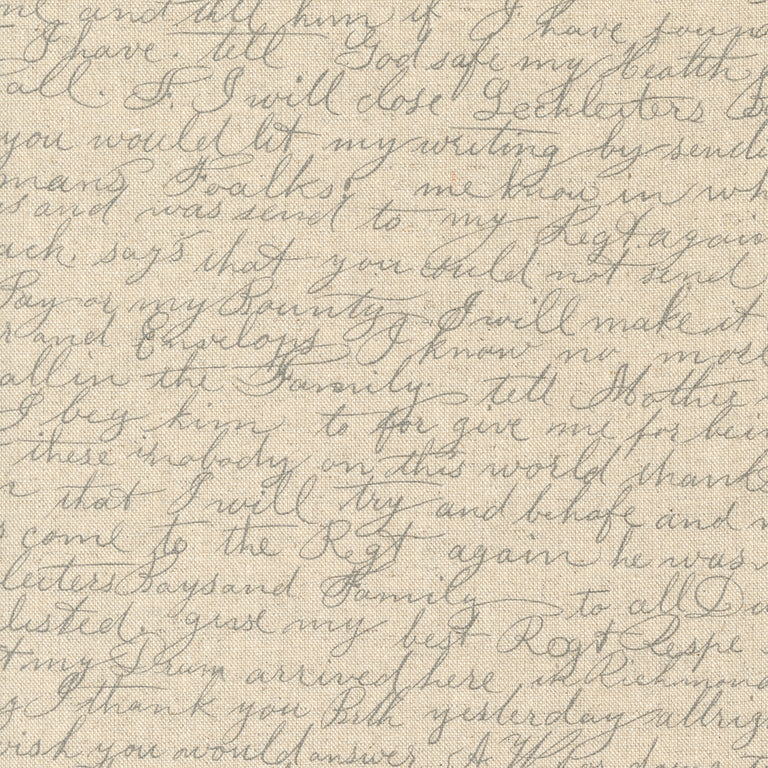 and tell him if I have found
I have. tell God safe my health
all. F. I will close Lechlesters
you would let my writing by sendi
mans Foalks. me know in wh
is and was send to my Regt. again
ack. says that you could not send
Pay or my Bounty, I will make it
r and Envelops I know no more
all in the Family. tell Mother
I beg him to for give me for bein
these is nobody on this world thank
that I will try and behafe and
come to the Regt again he was
leiters Says and Family to all
listed. give my best Regt Respe
t my Drum arrived here in Richmond
I thank you Both yesterday allrig
wish you would answer.